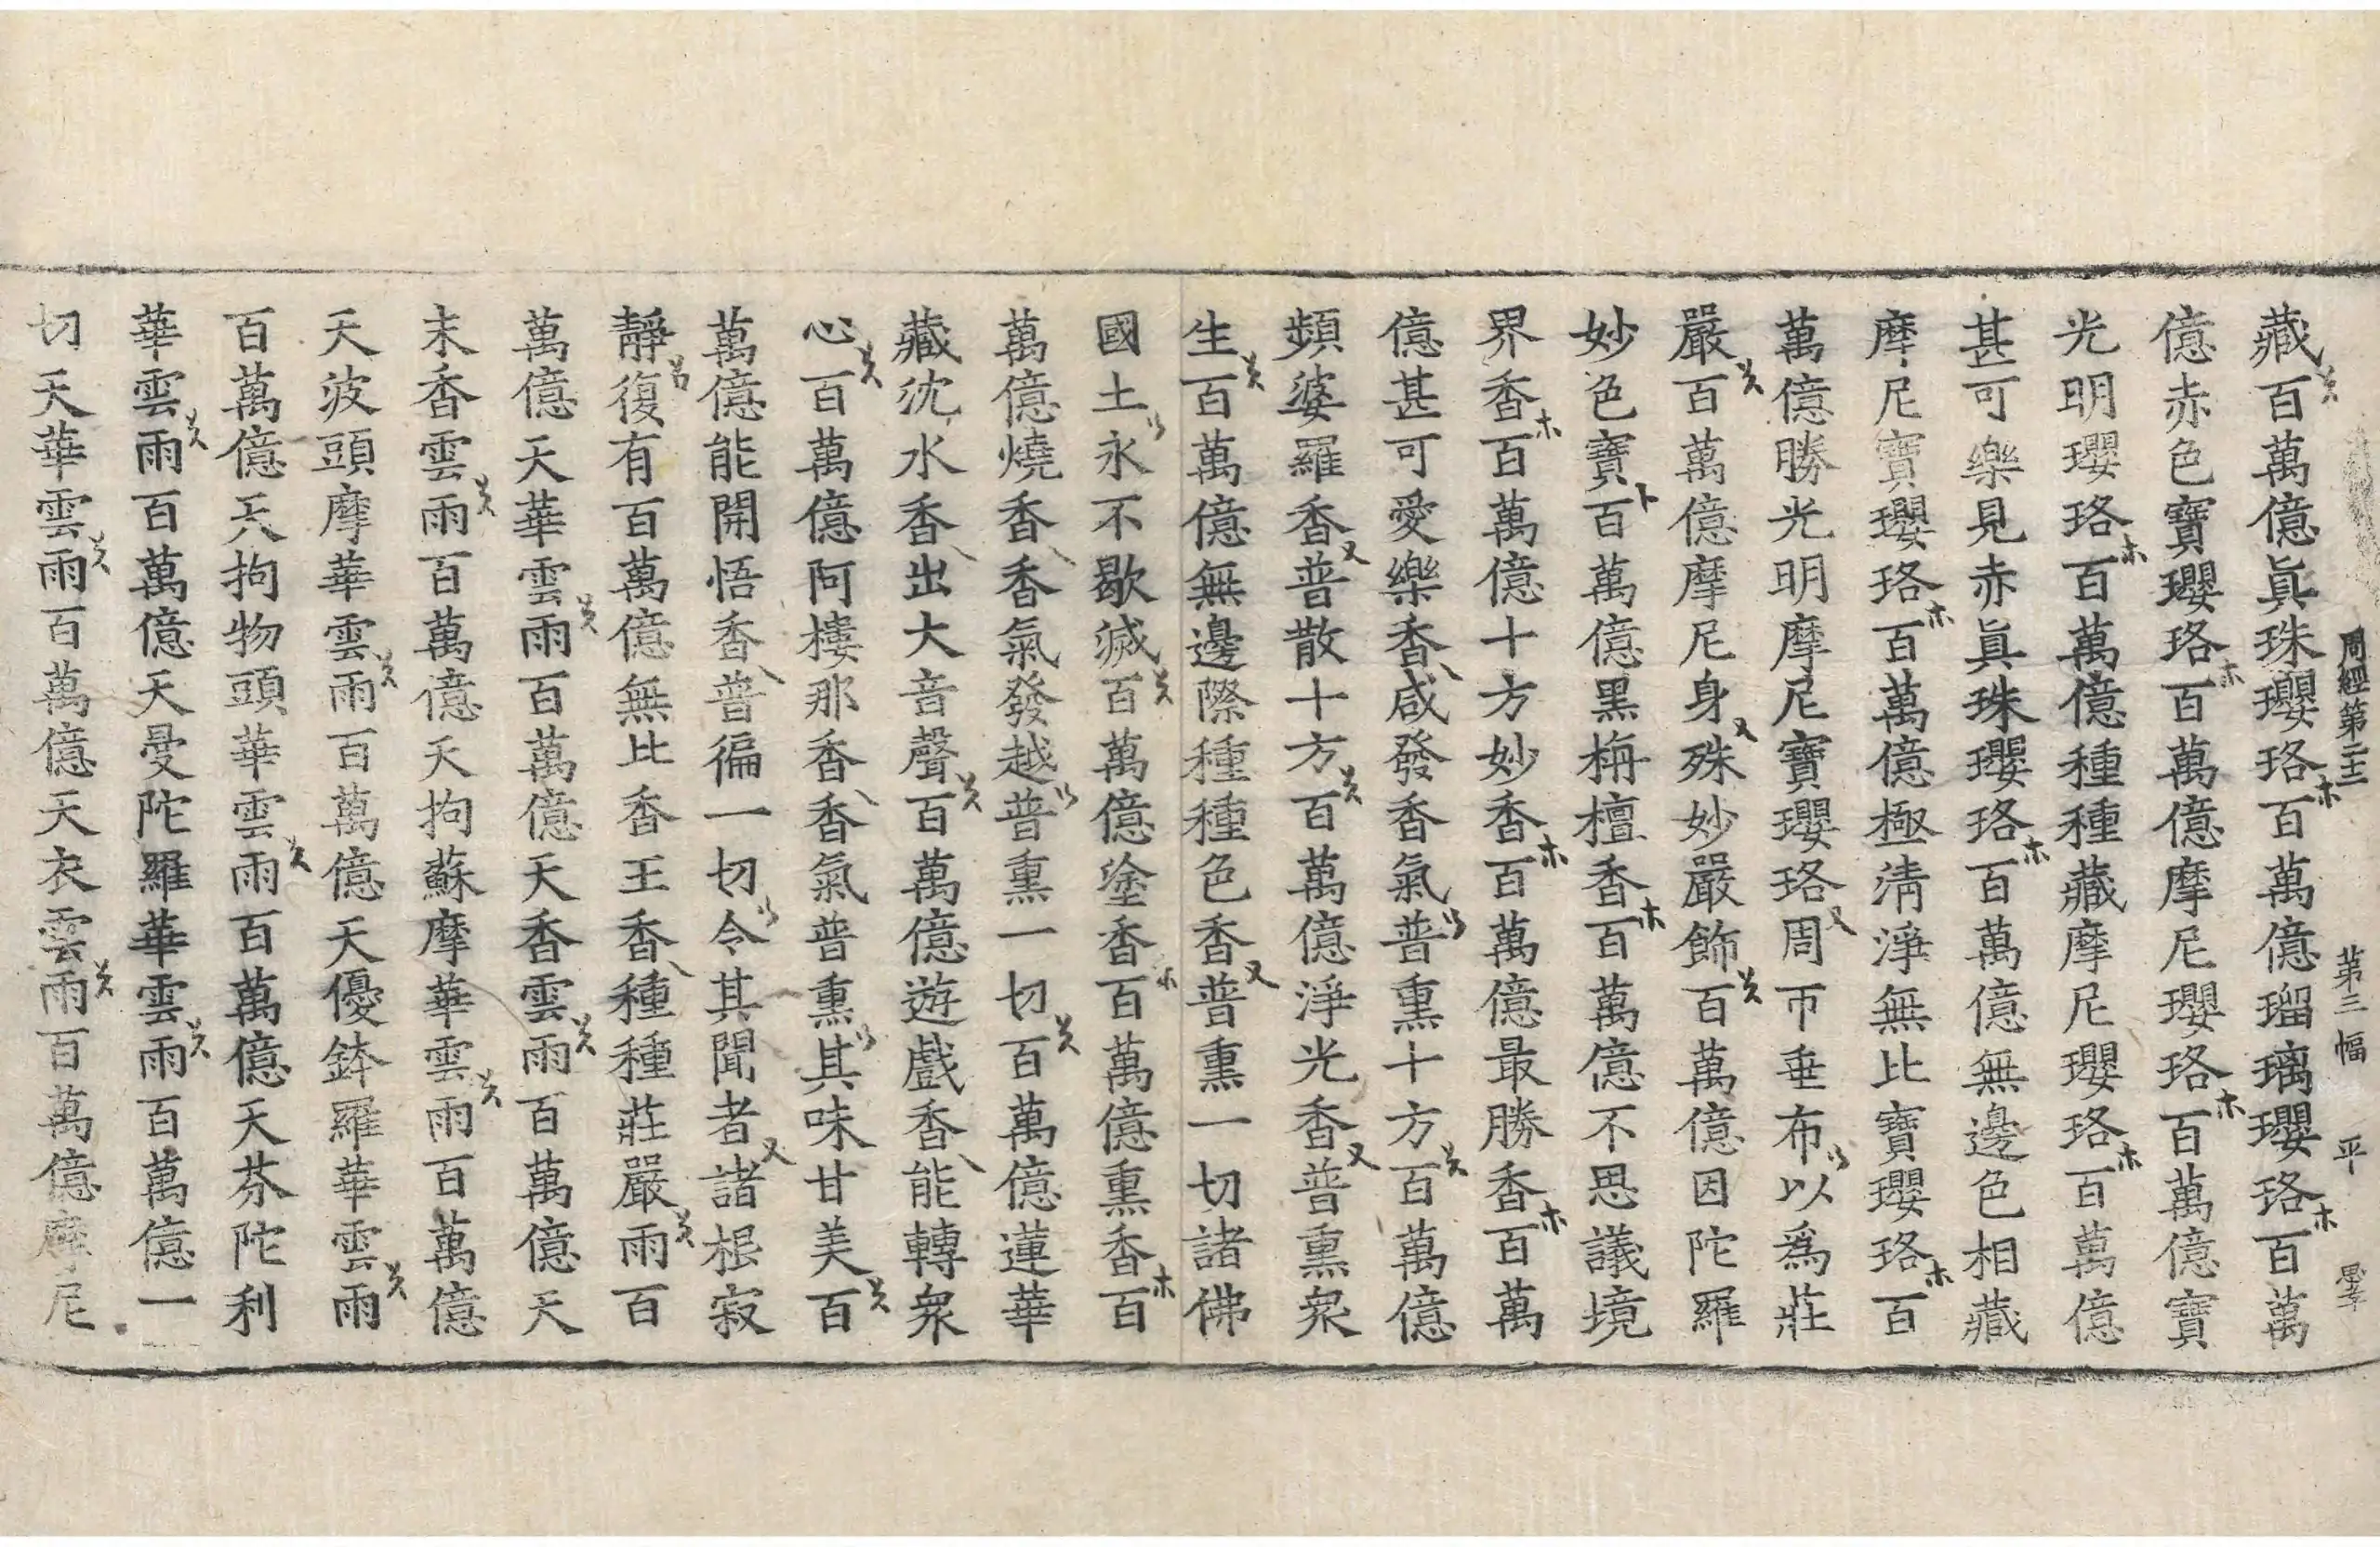 周經第二十二 第三幅 平
藏百萬億眞珠瓔珞百萬億瑠璃瓔珞百萬
億赤色寶瓔珞百萬億摩尼瓔珞百萬億寶
光明瓔珞百萬億種種藏摩尼瓔珞百萬億
甚可樂見赤眞珠瓔珞百萬億無邊色相藏
摩尼寶瓔珞百萬億極淸淨無比寶瓔珞百
萬億勝光明摩尼寶瓔珞周帀垂布以爲莊
嚴百萬億摩尼身殊妙嚴飾百萬億因陀羅
妙色寶百萬億黑栴檀香百萬億不思議境
界香百萬億十方妙香百萬億最勝香百萬
億甚可愛樂香咸發香氣普熏十方百萬億
頻婆羅香普散十方百萬億淨光香普熏衆
生百萬億無邊際種種色香普熏一切諸佛
國土永不歇滅百萬億塗香百萬億熏香百
萬億燒香香氣發越普熏一切百萬億蓮華
藏沈水香出大音聲百萬億遊戲香能轉衆
心百萬億阿樓那香香氣普熏其味甘美百
萬億能開悟香普徧一切令其聞者諸根寂
靜復有百萬億無比香王香種種莊嚴雨百
萬億天華雲雨百萬億天香雲雨百萬億天
末香雲雨百萬億天拘蘇摩華雲雨百萬億
天波頭摩華雲雨百萬億天優鉢羅華雲雨
百萬億天拘物頭華雲雨百萬億天芬陀利
華雲雨百萬億天曼陀羅華雲雨百萬億一
切天華雲雨百萬億天衣雲雨百萬億摩尼